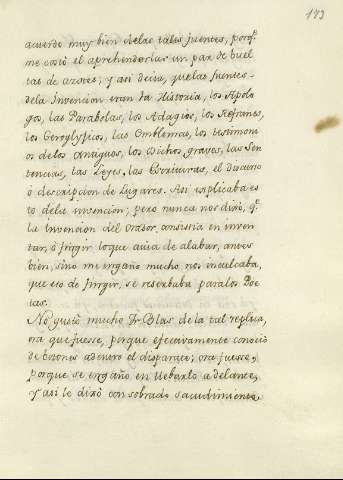 173
acuerdo muy bien delas tales fuentes, porq.e
me costó el aprehenderlas un par de buel-
tas de azotes; y asi decia, quelas fuentes
dela Invencion eran la Historia, los Apolo-
gos, las Parabolas, los Adagios, los Refranes,
los Geroglyficos, las Emblemas, los testimoni-
os delos Antiguos, los Dichos graves, las Sen-
tencias, las Leyes, las Escrituras, el discurso
ò descripcion de Lugares. Asi explicaba es-
to dela invencion; pero nunca nos dixo, q.e
la Invencion del Orador consistia en inven-
tar, ò fingir loque avia de alabar, antes
bien, sino me engaño mucho nos inculcaba,
que eso de fingir, se reserbaba paralos Poe-
tas.
No gustò mucho Fr. Blas de la tal replica,
ora que fuesse, porque efectivamente conociò
de botones adentro el disparate; ora fuesse,
porque se engañò en llebarlo adelante,
Y asi le dixo con sobrado sacudimiento